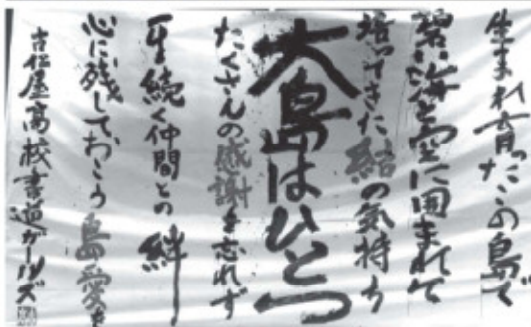 生まれ育ったこの島で
碧い海と空に囲まれて
培ってきた結の気持ち
大島はひとつ
たくさんの感謝を忘れず
一生続く仲間との絆
心に残しておこう島愛を
古仁屋高校書道ガールズ